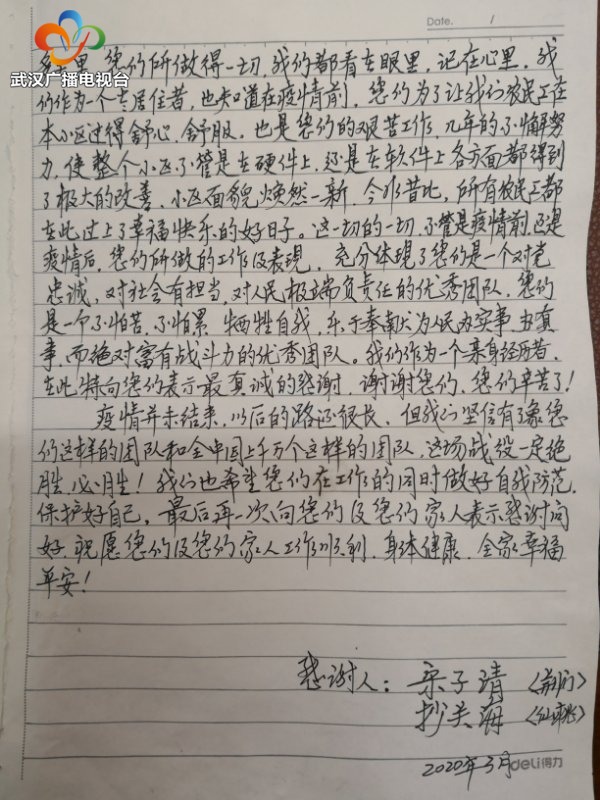 武汉广播电视台
Date. 1
里,您们所做得一切,我们都看在眼里,记在心里,我
们作为一个专居住者,也知道在疫情前,您们为了让我们农民工在
本小区过得舒心、舒服。也是您们的艰苦工作,几年的不懈努
力,使整个小区不管是在硬件上,还是在软件上各方面都得到
了极大的改善,小区面貌焕然一新,今非昔比,所有农民工都
在此过上了幸福快乐的好日子。这一切的一切,不管是疫情前还是
疫情后,您们所做的工作及表现,充分体现了您们是一个对党
忠诚,对社会有担当,对人民极端负责任的优秀团队,您们
是一个不怕苦,不怕累,牺牲自我,乐于奉献为人民办实事,办真
事,而绝对富有战斗力的优秀团队。我们作为一个亲身经历者,
在此特向您们表示最真诚的感谢,谢谢您们,您们辛苦了!
疫情并未结束,以后的路还很长,但我们坚信有了像您
们这样的团队和全中国上千万个这样的团队,这场战役一定绝
胜,必胜!我们也希望您们在工作的同时做好自我防范,
保护好自己。最后再一次向您们及您们家人表示感谢问
好,祝愿您们及您们家人工作顺利,身体健康,全家幸福
平安!
感谢人:子靖(荆门)
(仙桃)
2020年3月
deli得力